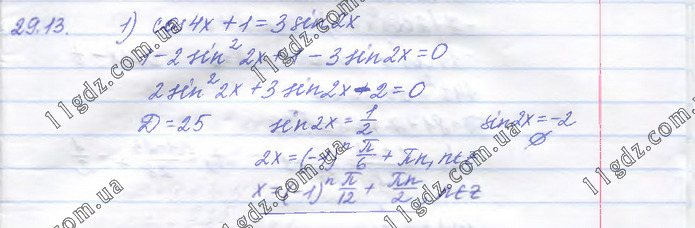 29.13. 1) cos 4x + 1 = 3 sin 2x
1 - 2 sin² 2x + 1 - 3 sin 2x = 0
2 sin² 2x + 3 sin 2x - 2 = 0
D = 25 sin 2x = 1/2 sin 2x = -2
2x = (-1)ⁿ π/6 + πn, n∈z ∅
x = (-1)ⁿ π/12 + πn/2 n∈z
11gdz.com.ua
11gdz.com.ua
11gdz.com.ua
11gdz.com.ua
11gdz.com.ua